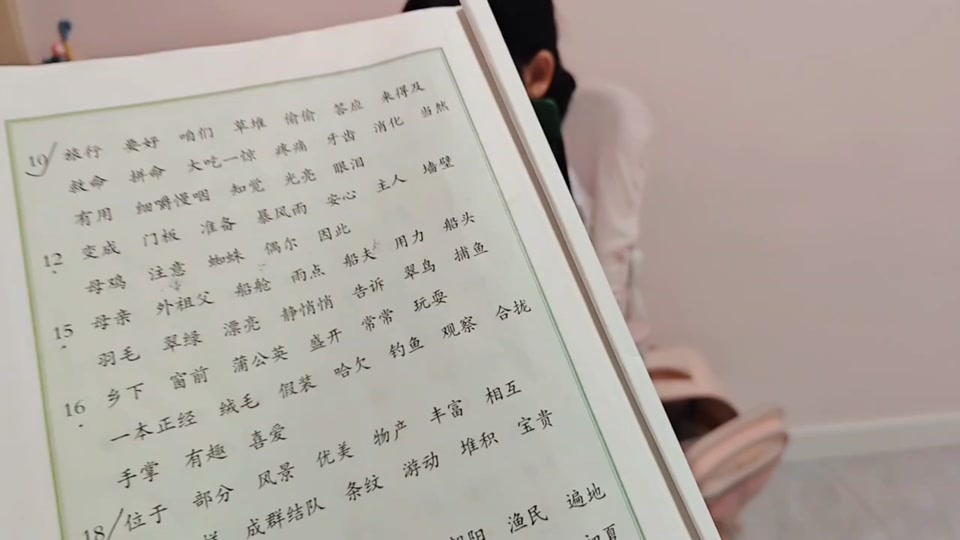 10 旅行 要好 咱们 草堆 偷偷 答应 来得及
救命 拼命 大吃一惊 疼痛 牙齿 消化 当然
有用 细嚼慢咽 知觉 光亮 眼泪
12 变成 门板 准备 暴风雨 安心 主人 墙壁
母鸡 注意 蜘蛛 偶尔 因此
15 母亲 外祖父 船舱 雨点 船夫 用力 船头
羽毛 翠绿 漂亮 静悄悄 告诉 翠鸟 捕鱼
16 乡下 窗前 蒲公英 盛开 常常 玩耍
一本正经 绒毛 假装 哈欠 钓鱼 观察 合拢
手掌 有趣 喜爱
18 位于 部分 风景 优美 物产 丰富 相互
成群结队 条纹 游动 堆积 宝贵
渔民 遍地
初夏